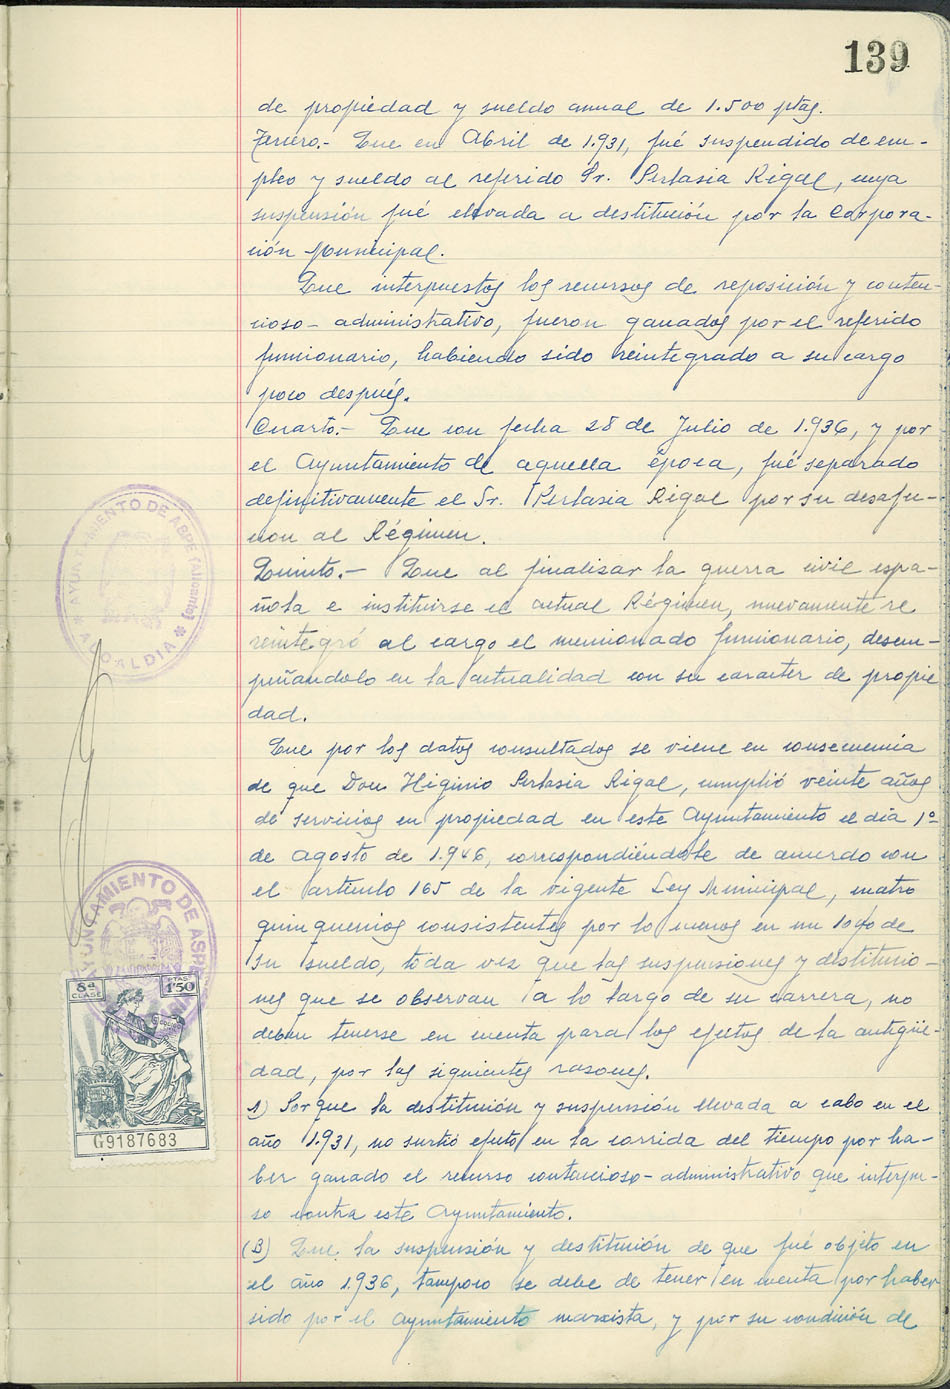 139
de propiedad y sueldo anual de 1.500 ptas.
Tercero.- Que en Abril de 1.931, fué suspendido de em-
pleo y sueldo al referido Sr. Pertasia Rigal, cuya
suspensión fué elevada a destitución por la Corpora-
ción Municipal.
Que interpuestos los recursos de reposición y conten-
cioso-administrativo, fueron ganados por el referido
funcionario, habiendo sido reintegrado a su cargo
poco después.
Cuarto.- Que con fecha 28 de Julio de 1.936, y por
el Ayuntamiento de aquella época, fué separado
definitivamente el Sr. Pertasia Rigal por su desafec-
cion al Régimen.
Quinto.- Que al finalizar la guerra civil espa-
ñola e instituirse el actual Régimen, nuevamente se
reintegró al cargo el mencionado funcionario, desem-
peñandolo en la actualidad con su caracter de propie
dad.
Que por los datos consultados se viene en consecuencia
de que Don Higinio Pertasia Rigal, cumplió veinte años
de servicios en propiedad en este Ayuntamiento el dia 1º
de Agosto de 1.946, correspondiéndole de acuerdo con
el artículo 165 de la vigente Ley Municipal, cuatro
quinquenios consistentes por lo menos en un 10% de
su sueldo, toda vez que las suspensiones y destitucio-
nes que se observan a lo largo de su carrera, no
deben tenerse en cuenta para los efectos de la antigüe-
dad, por las siguientes razones.
A) Porque la destitución y suspensión llevada a cabo en el
año 1.931, no surtió efecto en la corrida del tiempo por ha-
ber ganado el recurso contencioso-administrativo que interpu-
so contra este Ayuntamiento.
(B) Que la suspensión y destitución de que fué objeto en
el año 1.936, tampoco se debe de tener en cuenta por haber
sido por el Ayuntamiento marxista, y por su condición de
AYUNTAMIENTO DE ASPE (Alicante)
* ALCALDIA *
AYUNTAMIENTO DE ASPE
8ª CLASE
PTAS 1'50
G9187683